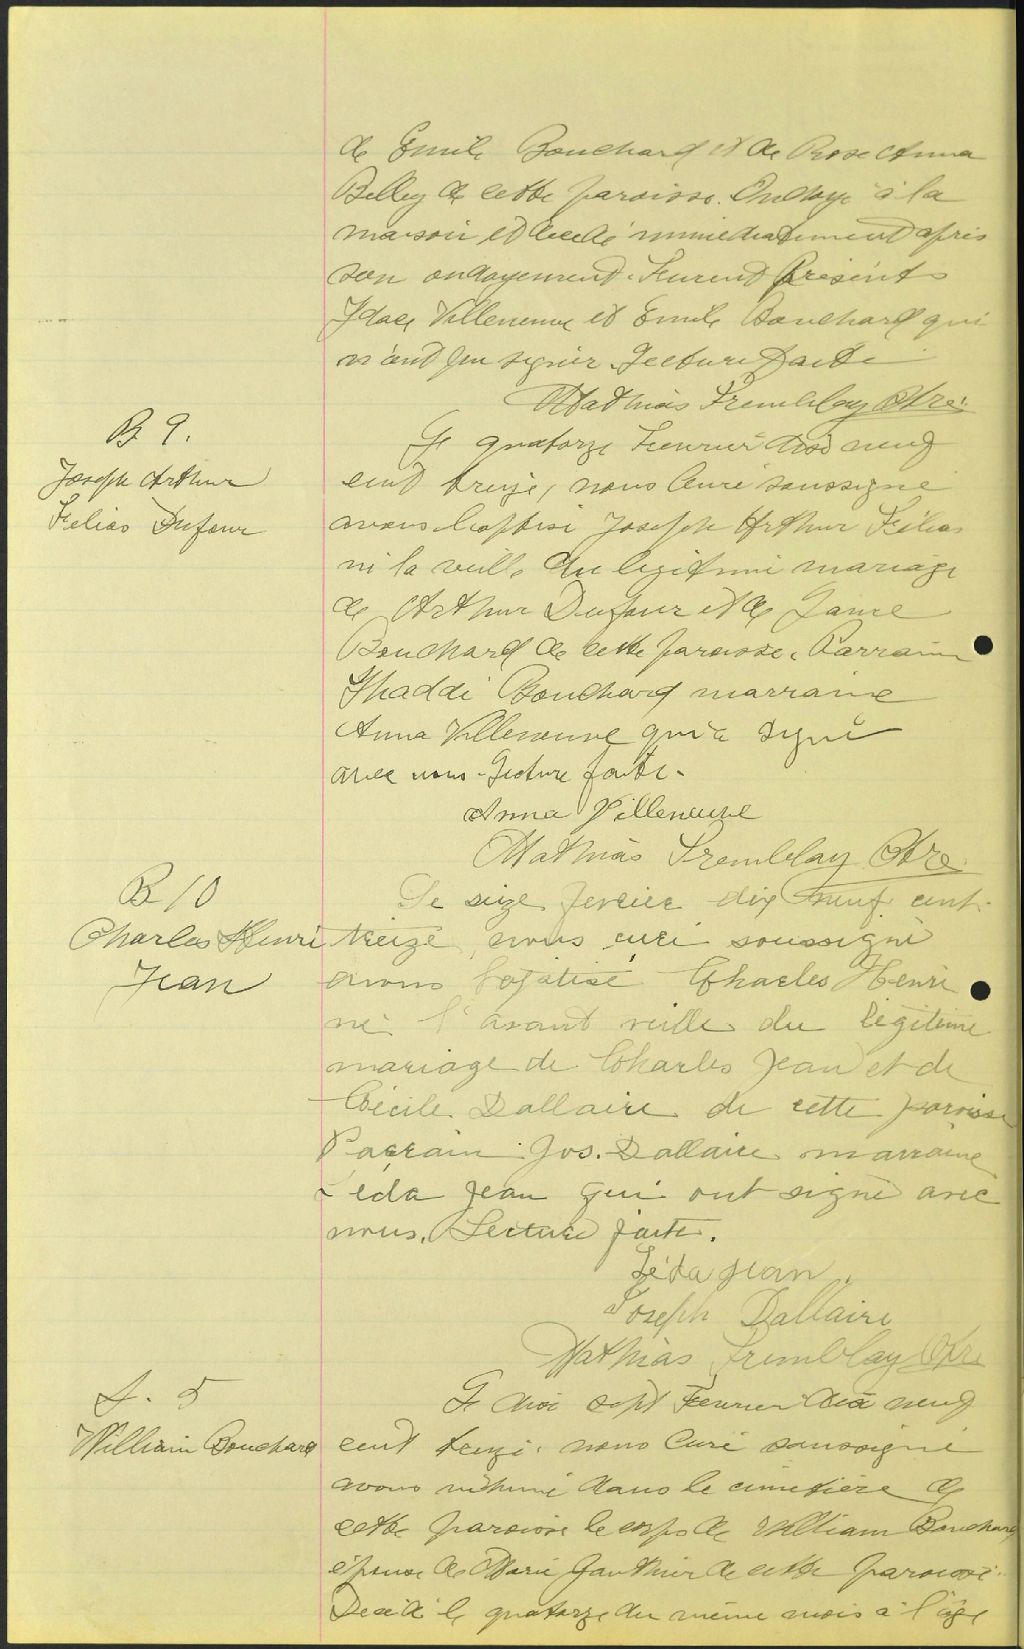 de Emile Bouchard et de Rose Anna
Belley de cette paroisse. Ondoyé à la
maison et décédé immédiatement après
son ondoyement. Furent présents
Villeneuve et Emile Bouchard qui
n'ont pu signer. Lecture faite
Mathias Tremblay Ptre
B 9.
Joseph Arthur
Félias Dufour
Le quatorze Fevrier dix neuf
cent treize, nous Curé soussigné
avons baptisé Joseph Arthur Félias
né la veille du légitime mariage
de Arthur Dufour et de
Bouchard de cette paroisse. Parrain
Thaddé Bouchard marraine
Anna Villeneuve qui a signé
avec nous. Lecture faite.
Anna Villeneuve
Mathias Tremblay Ptre
B 10
Charles Henri
Jean
Le seize fevrier dix neuf cent
treize, nous curé soussigné
avons baptisé Charles Henri
né l'avant veille du légitime
mariage de Charles Jean et de
Cécile Dallaire de cette paroisse
Parrain Jos. Dallaire marraine
Léda Jean qui ont signé avec
nous. Lecture faite.
Léda Jean
Joseph Dallaire
Mathias Tremblay Ptre
S. 5
William Bouchard
Le dix sept Fevrier dix neuf
cent treize, nous Curé soussigné
avons inhumé dans le cimetière de
cette paroisse le corps de William Bouchard
épouse de Marie Gauthier de cette paroisse.
Décédé le quatorze du même mois à l'âge